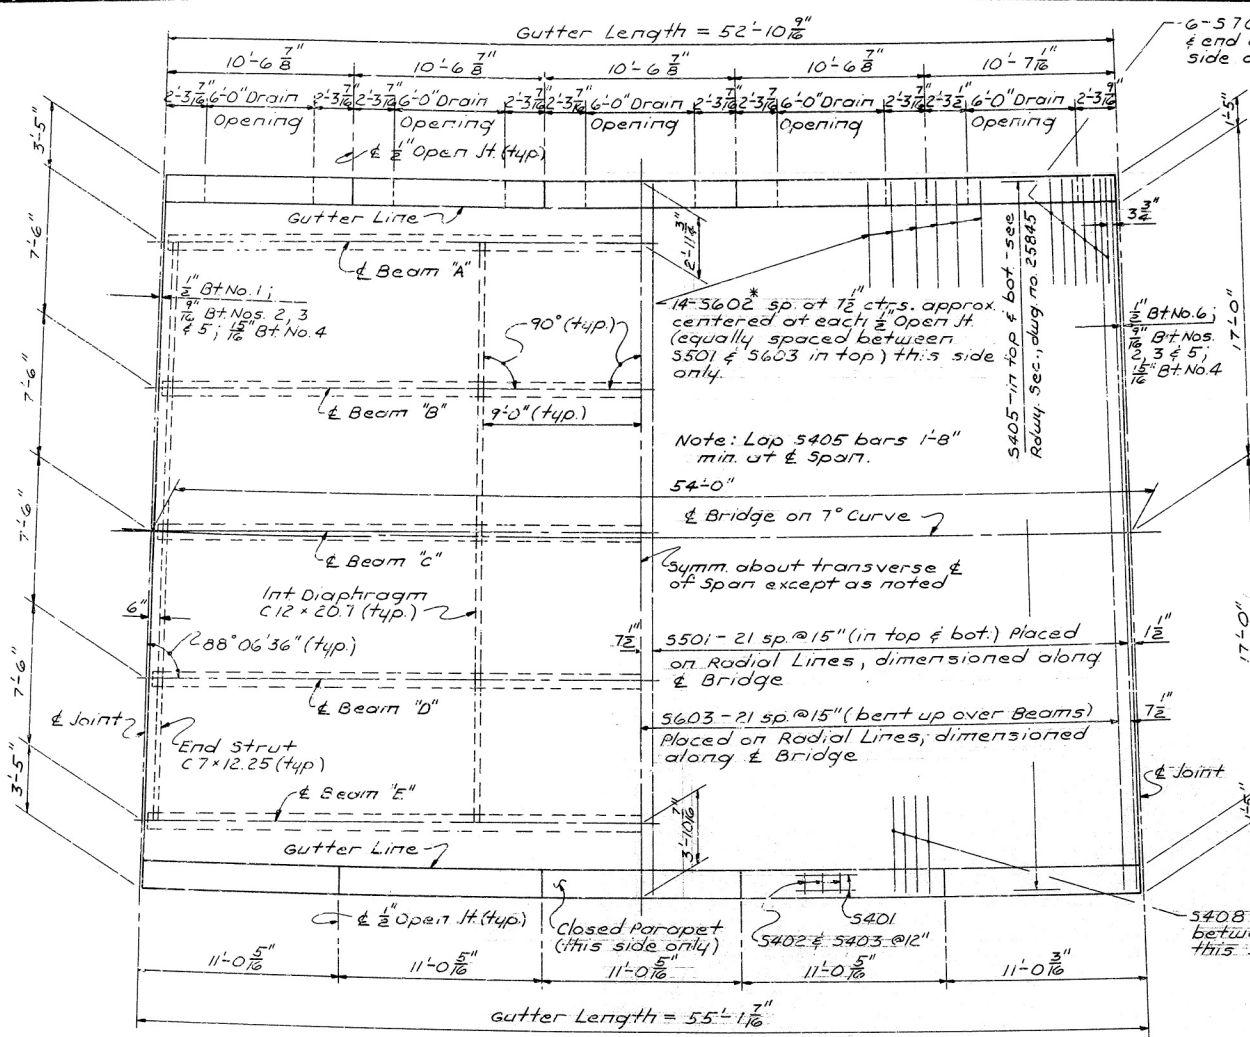 Gutter Length = 52'-10 9/16"
6-S70
& end
side o
10'-6 7/8" 10'-6 7/8" 10'-6 7/8" 10'-6 7/8" 10'-7 1/16"
2'-3 7/16" 6'-0" Drain Opening 2'-3 7/16"
2'-3 7/16" 6'-0" Drain Opening 2'-3 7/16"
2'-3 7/16" 6'-0" Drain Opening 2'-3 7/16"
2'-3 7/16" 6'-0" Drain Opening 2'-3 7/16"
2'-3 1/2" 6'-0" Drain Opening 2'-3 9/16"
℄ 1/2" Open Jt. (typ.)
3'-5"
7'-6"
7'-6"
7'-6"
7'-6"
3'-5"
1'-5"
17'-0"
17'-0"
1'-5"
Gutter Line
℄ Beam "A"
2'-11 3/4"
3 3/4"
1/2" Bt No. 1;
9/16" Bt Nos. 2, 3
& 5; 15/16" Bt No. 4
90° (typ.)
14-S602* sp. at 7 1/2" ctrs. approx.
centered at each 1/2" Open Jt.
(equally spaced between
S501 & S603 in top) this side
only.
S405-in top & bot.-see
Rdwy Sec., dwg. no. 25845
1/2" Bt No. 6;
9/16" Bt Nos.
2, 3 & 5;
15/16" Bt No. 4
℄ Beam "B"
9'-0" (typ.)
Note: Lap S405 bars 1'-8"
min. at ℄ Span.
54'-0"
℄ Bridge on 7° Curve
℄ Beam "C"
Symm. about transverse ℄
of Span except as noted
Int Diaphragm
C 12 × 20.7 (typ.)
6"
88° 06' 36" (typ.)
7 1/2"
S501 - 21 sp. @ 15" (in top & bot.) Placed
on Radial Lines, dimensioned along
℄ Bridge
1 1/2"
℄ Beam "D"
℄ Joint
S603 - 21 sp. @ 15" (bent up over Beams)
Placed on Radial Lines, dimensioned
along ℄ Bridge
7 1/2"
End Strut
C 7 × 12.25 (typ)
℄ Joint
℄ Beam "E"
3'-10 7/16"
Gutter Line
℄ 1/2" Open Jt. (typ.)
Closed Parapet
(this side only)
S401
S402 & S403 @ 12"
S408
betwe
this
11'-0 5/16" 11'-0 5/16" 11'-0 5/16" 11'-0 5/16" 11'-0 3/16"
Gutter Length = 55'-1 7/16"